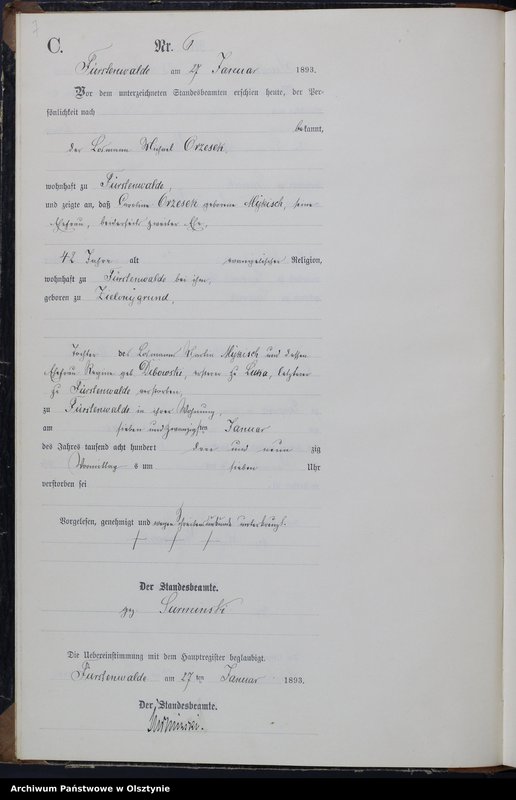 7
C.
Nr. 6
Fürstenwalde am 27 Januar 1893.
Vor dem unterzeichneten Standesbeamten erschien heute, der Per-
sönlichkeit nach
bekannt,
der Losmann Michael Orzesek
wohnhaft zu Fürstenwalde,
und zeigte an, daß Caroline Orzesek geborene Myksisch, seine
Ehefrau, beiderseits zweiter Ehe,
42 Jahre alt evangelischer Religion,
wohnhaft zu Fürstenwalde bei ihm,
geboren zu Zielonygrund,
Tochter des Losmann Martin und dessen
Ehefrau Regine geb. Dibowski, ersterer zu letzterer
zu Fürstenwalde verstorben,
zu Fürstenwalde in ihrer Wohnung,
am sieben und zwanzigsten Januar
des Jahres tausend acht hundert drei und neunzig
Vormittags um sieben Uhr
verstorben sei
Vorgelesen, genehmigt und wegen Schreibensunkunde unterkreuzt.
+ + +
Der Standesbeamte.
gez.
Die Uebereinstimmung mit dem Hauptregister beglaubigt.
Fürstenwalde am 27ten Januar 1893.
Der Standesbeamte.
Archiwum Państwowe w Olsztynie